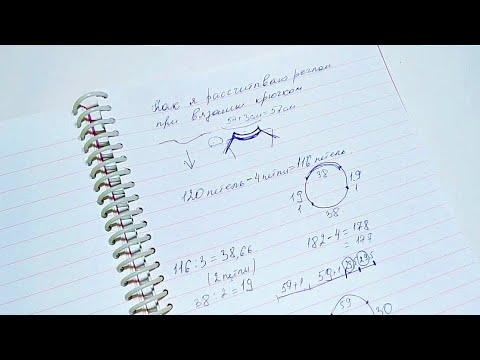 Как я рассчитываю реглан
при вязании крючком
54+3см=57см
120 петель - 4 петли = 116 петель.
38
19
19
1
1
38
116:3=38,66
(2 петли)
38:2=19
182-4=178
=177
59+1
59+1
59
30